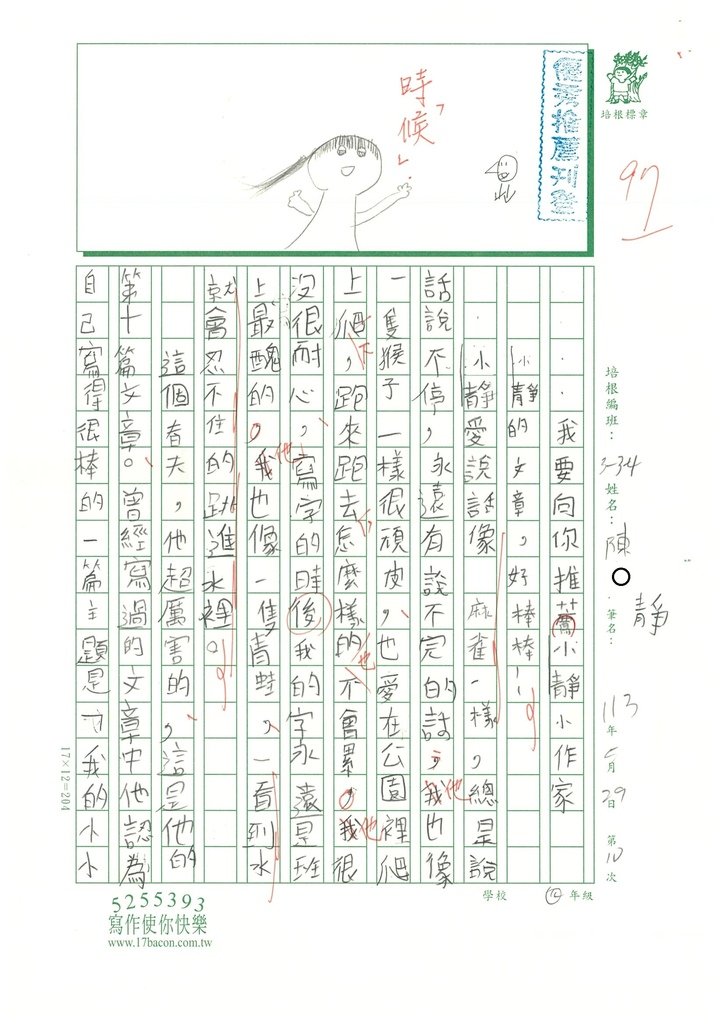 優秀推薦刊登
培根標章
97
時候
培根編班：3-34
姓名：陳
靜
筆名：
113年5月29日 第10次
我要向你推薦小靜小作家
小靜的文章，好棒棒！
小靜愛說話像麻雀一樣，總是說
話說不停，永遠有說不完的話，我他也像
一隻猴子一樣很頑皮，也愛在公園裡爬
上爬下，跑來跑去怎麼樣的不也會累。我他很
沒很耐心，寫字的時後我的字永遠是班
上最醜的。我他也像一隻青蛙，一看到水
就會忍不住的跳進水裡。
這個春夫，他超厲害的，這是他的
第十篇文章。曾經寫過的文章中他認為
自己寫得很棒的一篇主題是寸我的小小
學校
年級
17×12=204
5255393
寫作使你快樂
www.17bacon.com.tw